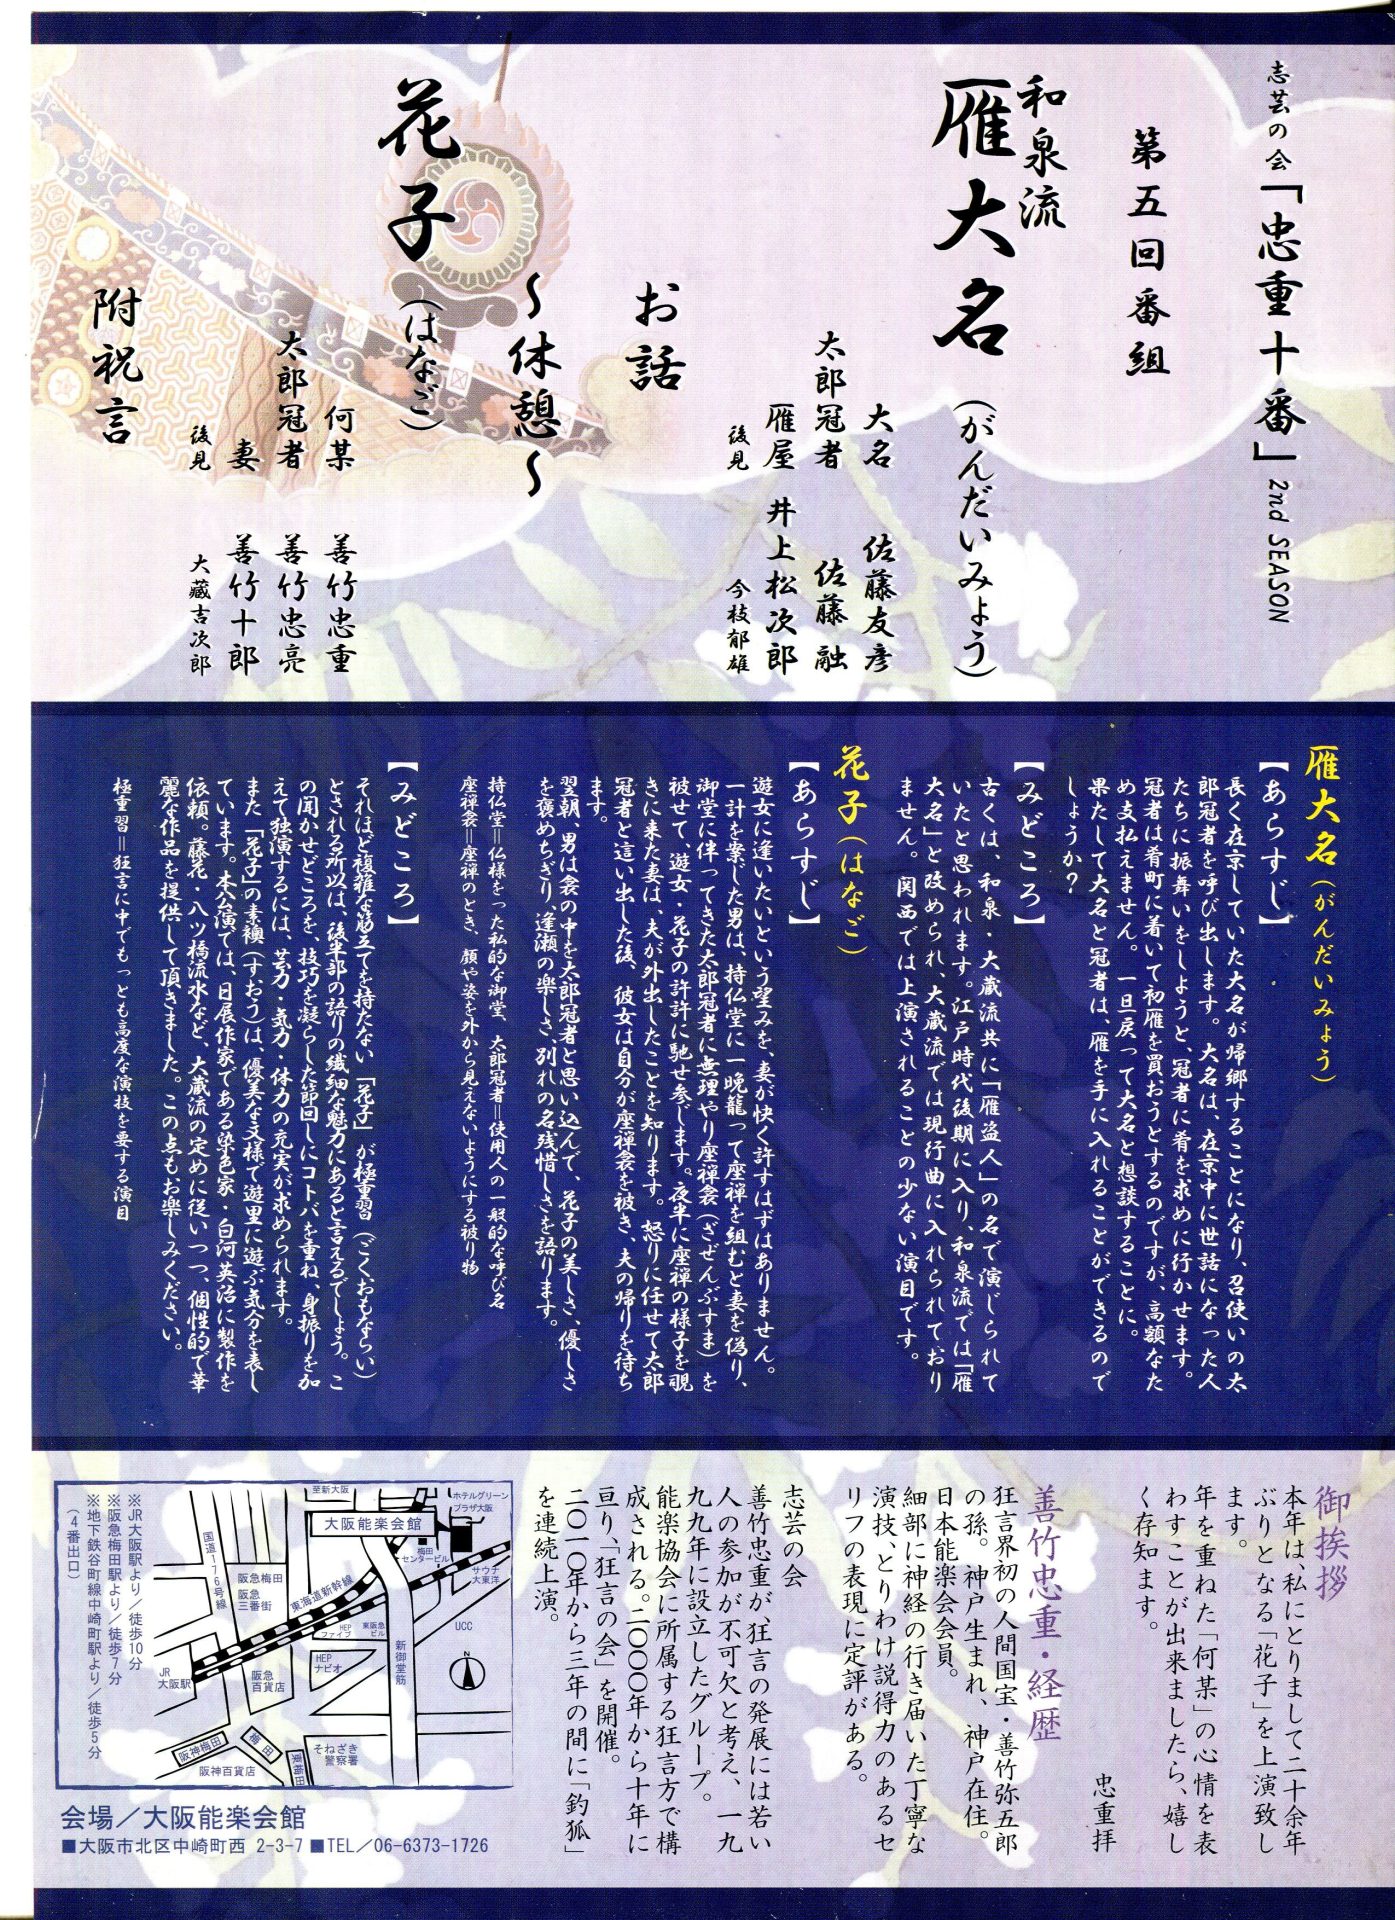 志芸の会「忠重十番」2nd SEASON
第五回番組
和泉流
雁大名(がんだいみょう)
大名 佐藤友彦
太郎冠者 佐藤融
雁屋 井上松次郎
後見 今枝郁雄
お話
〜休憩〜
花子(はなご)
何某 善竹忠重
太郎冠者 善竹忠亮
妻 善竹十郎
後見 大藏吉次郎
附祝言
雁大名(がんだいみょう)
【あらすじ】
長く在京していた大名が帰郷することになり、召使いの太
郎冠者を呼び出します。大名は、在京中に世話になった人
たちに振舞いをしようと、冠者に肴を求めに行かせます。
冠者は肴町に着いて初雁を買おうとするのですが、高額なた
め支払えません。一旦戻って大名と想談することに。
果たして大名と冠者は、雁を手に入れることができるので
しょうか?
【みどころ】
古くは、和泉・大蔵流共に「雁盗人」の名で演じられて
いたと思われます。江戸時代後期に入り、和泉流では「雁
大名」と改められ、大蔵流では現行曲に入れられており
ません。関西では上演されることの少ない演目です。
花子(はなご)
【あらすじ】
遊女に逢いたいという望みを、妻が快く許すはずはありません。
一計を案じた男は、持仏堂に一晩籠って座禅を組むと妻を偽り、
御堂に伴ってきた太郎冠者に無理やり座禅衾(ざぜんぶすま)を
被せて、遊女・花子の許許に馳せ参じます。夜半に座禅の様子を覗
きに来た妻は、夫が外出したことを知ります。怒りに任せて太郎
冠者と這い出した後、彼女は自分が座禅衾を被き、夫の帰りを待ち
ます。
翌朝、男は衾の中を太郎冠者と思い込んで、花子の美しさ、優しさ
を褒めちぎり、逢瀬の楽しさ、別れの名残惜しさを語ります。
持仏堂=仏様をった私的な御堂、太郎冠者=使用人の一般的な呼び名
座禅衾=座禅のとき、顔や姿を外から見えないようにする被り物
【みどころ】
それほど複雑な筋立てを持たない「花子」が極重習(ごくおもならい)
とされる所以は、後半部の語りの繊細な魅力にあると言えるでしょう。こ
の聞かせどころを、技巧を凝らした節回しにコトバを重ね、身振りを加
えて独演するには、芸力・気力・体力の充実が求められます。
また「花子」の素襖(すおう)は、優美な文様で遊里に遊ぶ気分を表し
ています。本公演では、日展作家である染色家・白河英治に製作を
依頼。藤花・八ツ橋流水など、大蔵流の定めに従いつつ、個性的で華
麗な作品を提供して頂きました。この点もお楽しみください。
極重習=狂言に中でもっとも高度な演技を要する演目
御挨拶
本年は、私にとりまして二十余年
ぶりとなる「花子」を上演致し
ます。
年を重ねた「何某」の心情を表
わすことが出来ましたら、嬉し
く存知ます。
忠重拝
善竹忠重・経歴
狂言界初の人間国宝・善竹弥五郎
の孫。神戸生まれ、神戸在住。
日本能楽会会員。
細部に神経の行き届いた丁寧な
演技、とりわけ説得力のあるセ
リフの表現に定評がある。
志芸の会
善竹忠重が、狂言の発展には若い
人の参加が不可欠と考え、一九
九九年に設立したグループ。
能楽協会に所属する狂言方で構
成される。二〇〇〇年から十年に
亘り、「狂言の会」を開催。
二〇一〇年から三年の間に「釣狐」
を連続上演。
至新大阪
ホテルグリーン
プラザ大阪
大阪能楽会館
梅田
センタービル
サウナ
大東洋
国道176号線
阪急梅田
阪急
三番街
東海道新幹線
HEP
ファイブ
東阪急
ビル
UCC
新御堂筋
HEP
ナビオ
N
JR
大阪駅
阪急
百貨店
阪神梅田
梅田
東梅田
そねざき
警察署
阪神百貨店
※JR大阪駅より/徒歩10分
※阪急梅田駅より/徒歩7分
※地下鉄谷町線中崎町駅より/徒歩5分
(4番出口)
会場/大阪能楽会館
■大阪市北区中崎町西 2-3-7 ■TEL/06-6373-1726